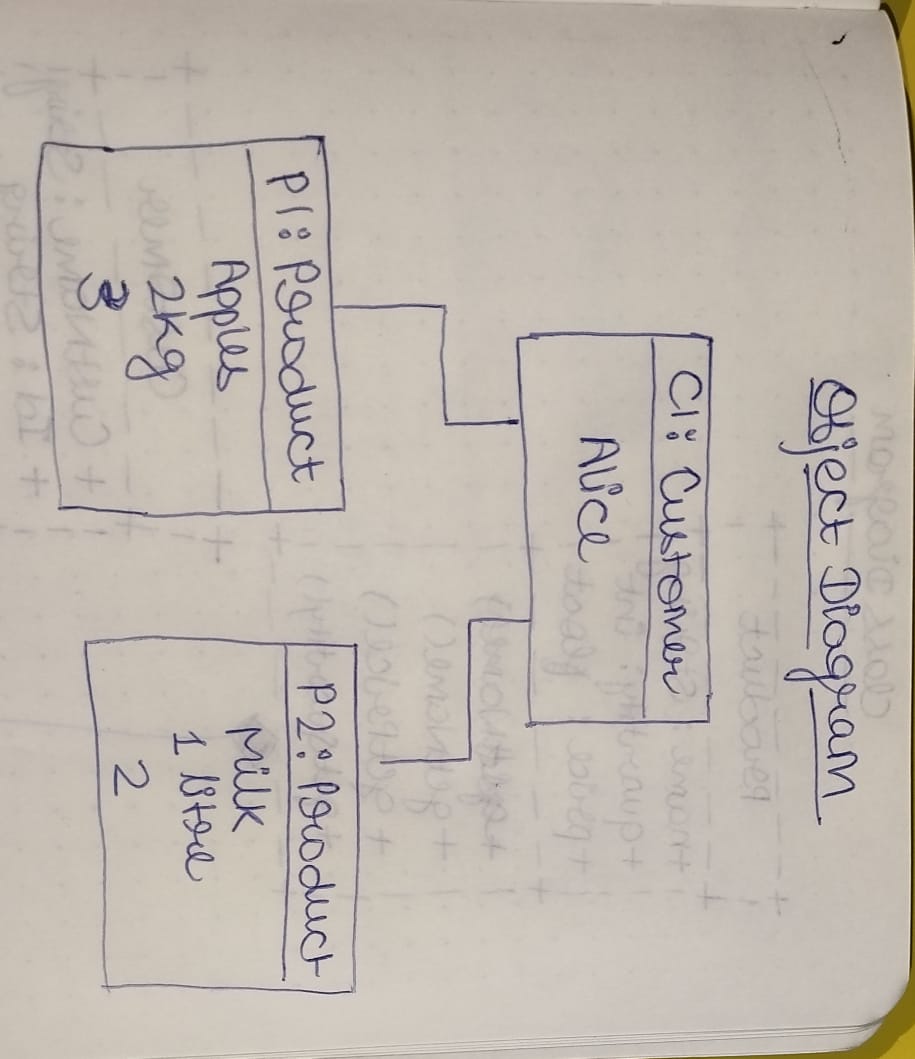 Object Diagram
C1: Customer
Alice
P1: Product
Apples
2kg
3
P2: Product
Milk
1 litre
2